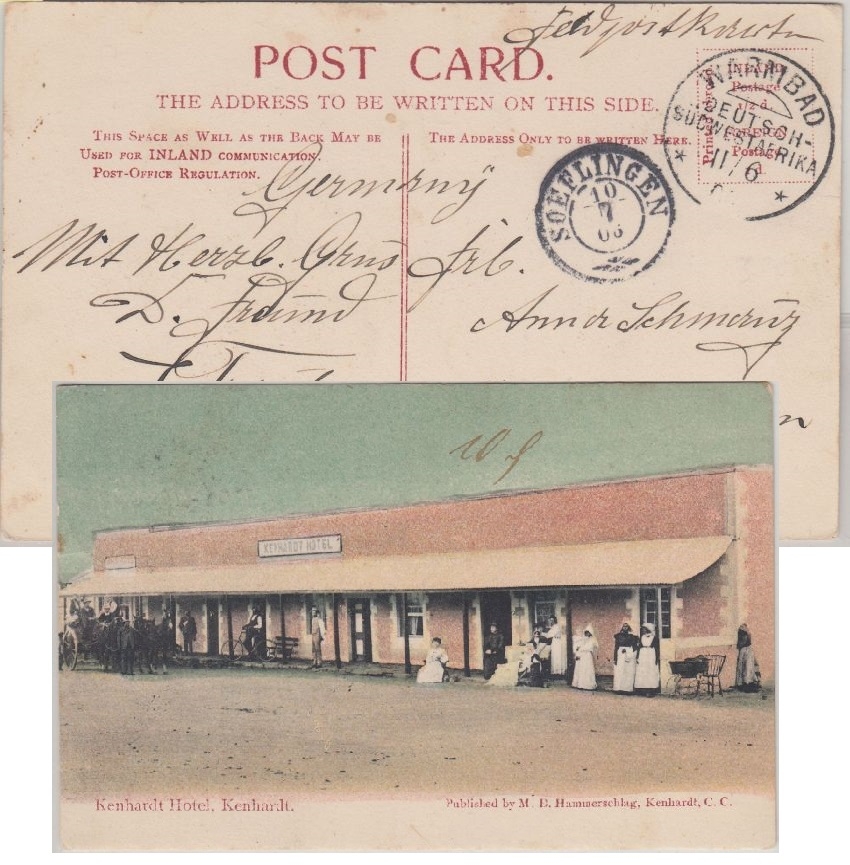 Feldpostkarte
POST CARD.
THE ADDRESS TO BE WRITTEN ON THIS SIDE.
THIS SPACE AS WELL AS THE BACK MAY BE
USED FOR INLAND COMMUNICATION.
POST-OFFICE REGULATION.
THE ADDRESS ONLY TO BE WRITTEN HERE.
INLAND
Postage
1/2 d.
FOREIGN
Postage
d.
WARMBAD
DEUTSCH-
SÜDWESTAFRIKA
11/6
SOEFLINGEN
10
7
06
Germany
Mit Herzl. Grus Frl.
D. Freund
Anna Schmauz
KENHARDT HOTEL
Kenhardt Hotel, Kenhardt.
Published by M. B. Hammerschlag, Kenhardt, C. C.